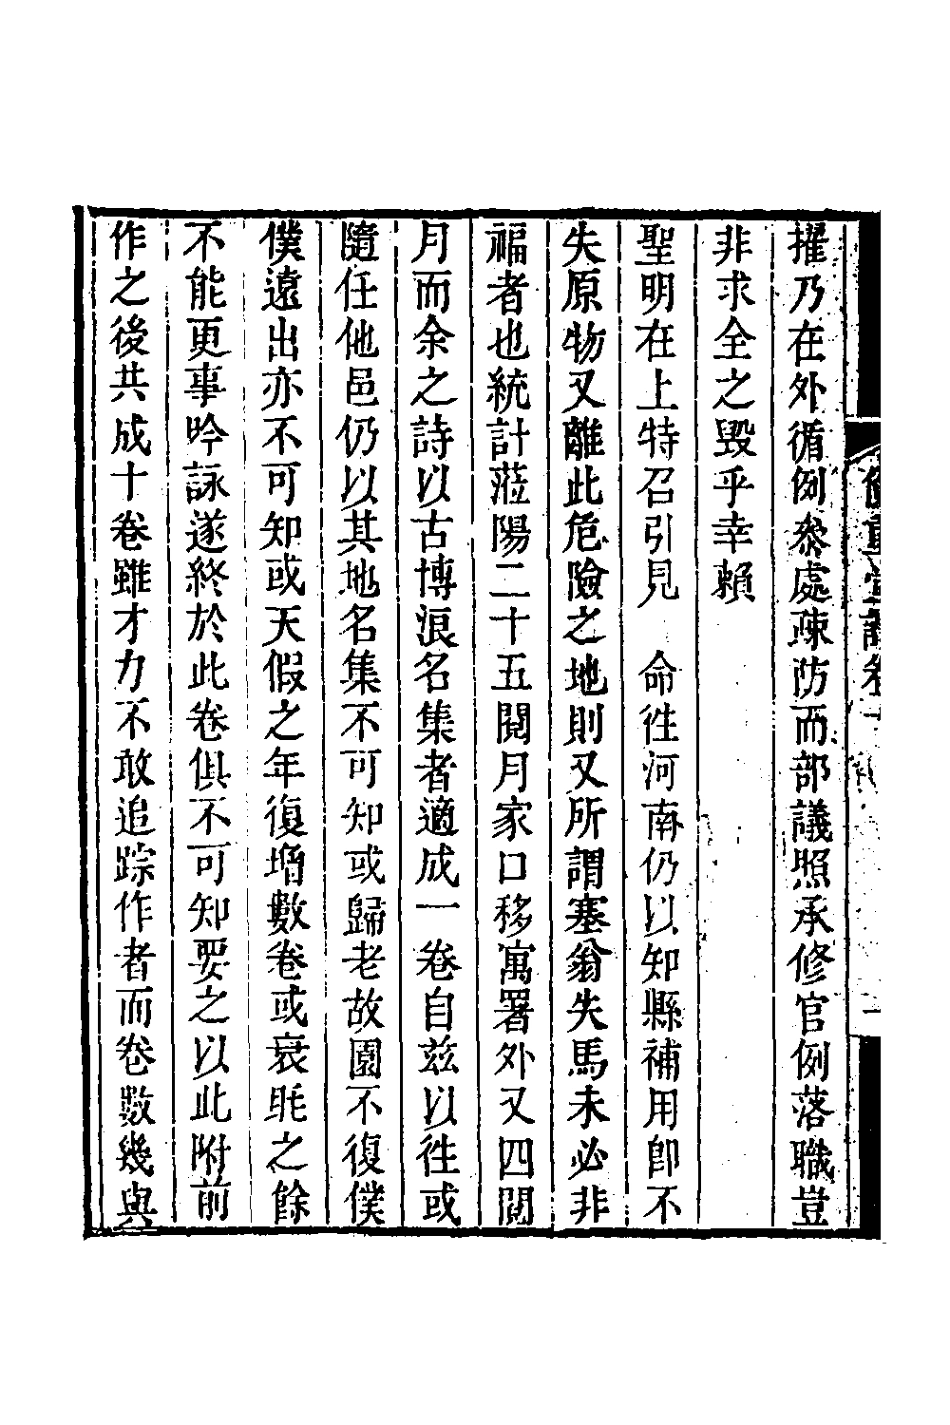 擢乃在外循例叅處疎防而部議照承修官例落職豈
非求全之毀乎幸賴
聖明在上特召引見　命徃河南仍以知縣補用卽不
失原物又離此危險之地則又所謂塞翁失馬未必非
福者也統計蒞陽二十五閱月家口移寓署外又四閱
月而余之詩以古博浪名集者適成一卷自茲以徃或
隨任他邑仍以其地名集不可知或歸老故園不復僕
僕遠出亦不可知或天假之年復增數卷或衰眊之餘
不能更事吟詠遂終於此卷俱不可知要之以此附前
作之後共成十卷雖才力不敢追踪作者而卷數幾與